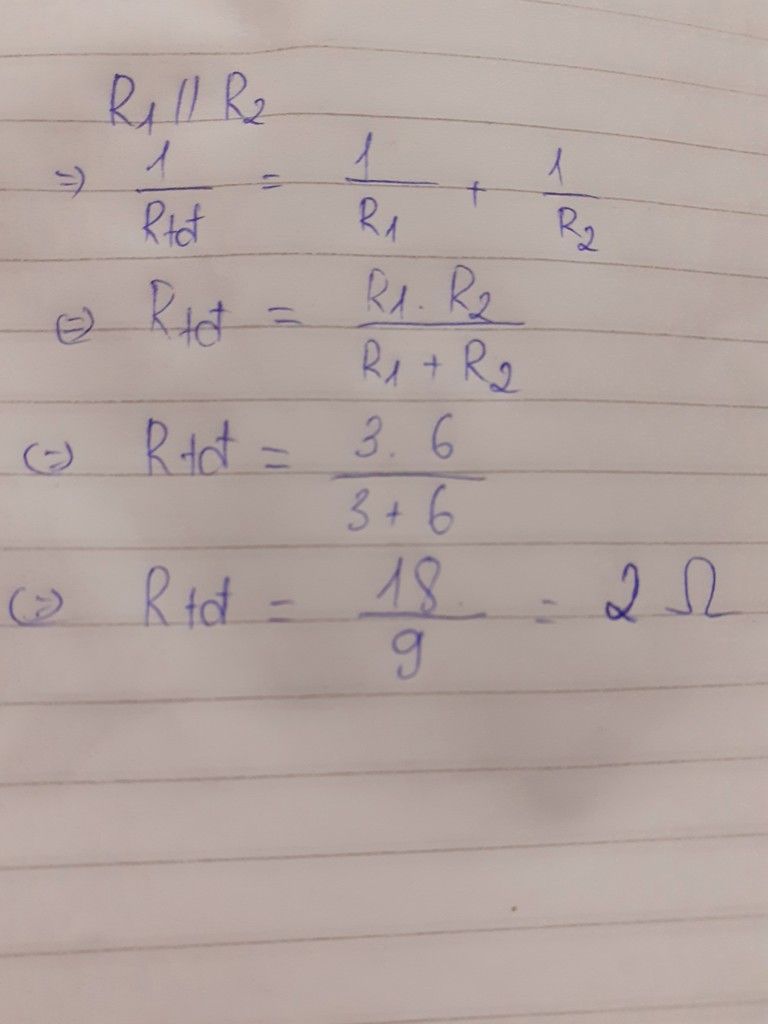 R1 // R2
⇒ 1/Rtot = 1/R1 + 1/R2
⇔ Rtot = R1 . R2 / R1 + R2
⇔ Rtot = 3 . 6 / 3 + 6
⇔ Rtot = 18/9 = 2 Ω